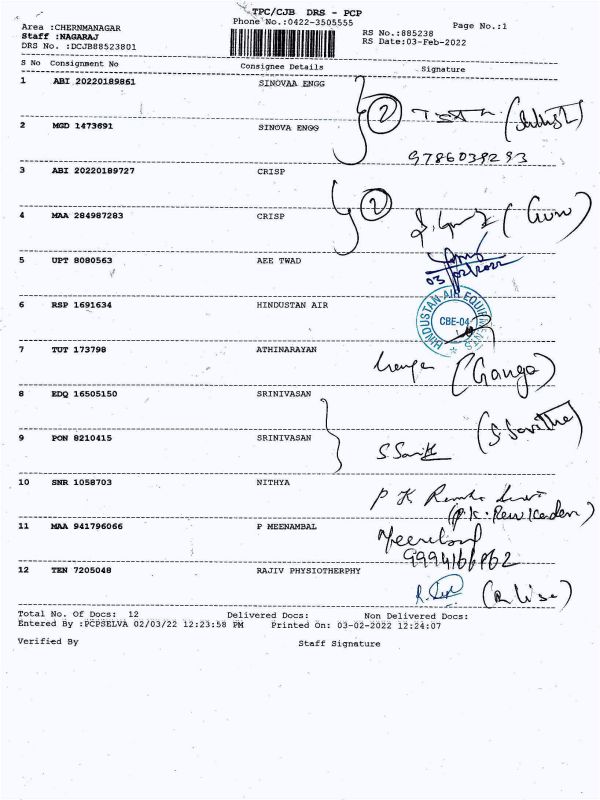 TPC/CJB DRS - PCP
Area :CHERNMANAGAR Phone No.:0422-3505555 Page No.:1
Staff :NAGARAJ RS No.:885238
DRS No. :DCJB88523801 RS Date:03-Feb-2022
S No Consignment No Consignee Details Signature
1 ABI 20220189861 SINOVAA ENGG
2
2 MGD 1473691 SINOVA ENGG
9786039293
3 ABI 20220189727 CRISP
2
4 MAA 284987283 CRISP (Guru)
5 UPT 8080563 AEE TWAD
03/02/2022
6 RSP 1691634 HINDUSTAN AIR
HINDUSTAN AIR EQUIPMENTS
CBE-04
7 TUT 173798 ATHINARAYAN
Ganga (Ganga)
8 EDQ 16505150 SRINIVASAN
(S. Savitha)
9 PON 8210415 SRINIVASAN
10 SNR 1058703 NITHYA
P K
11 MAA 941796066 P MEENAMBAL
12 TEN 7205048 RAJIV PHYSIOTHERPHY
Total No. Of Docs: 12 Delivered Docs: Non Delivered Docs:
Entered By :PCPSELVA 02/03/22 12:23:58 PM Printed On: 03-02-2022 12:24:07
Verified By Staff Signature